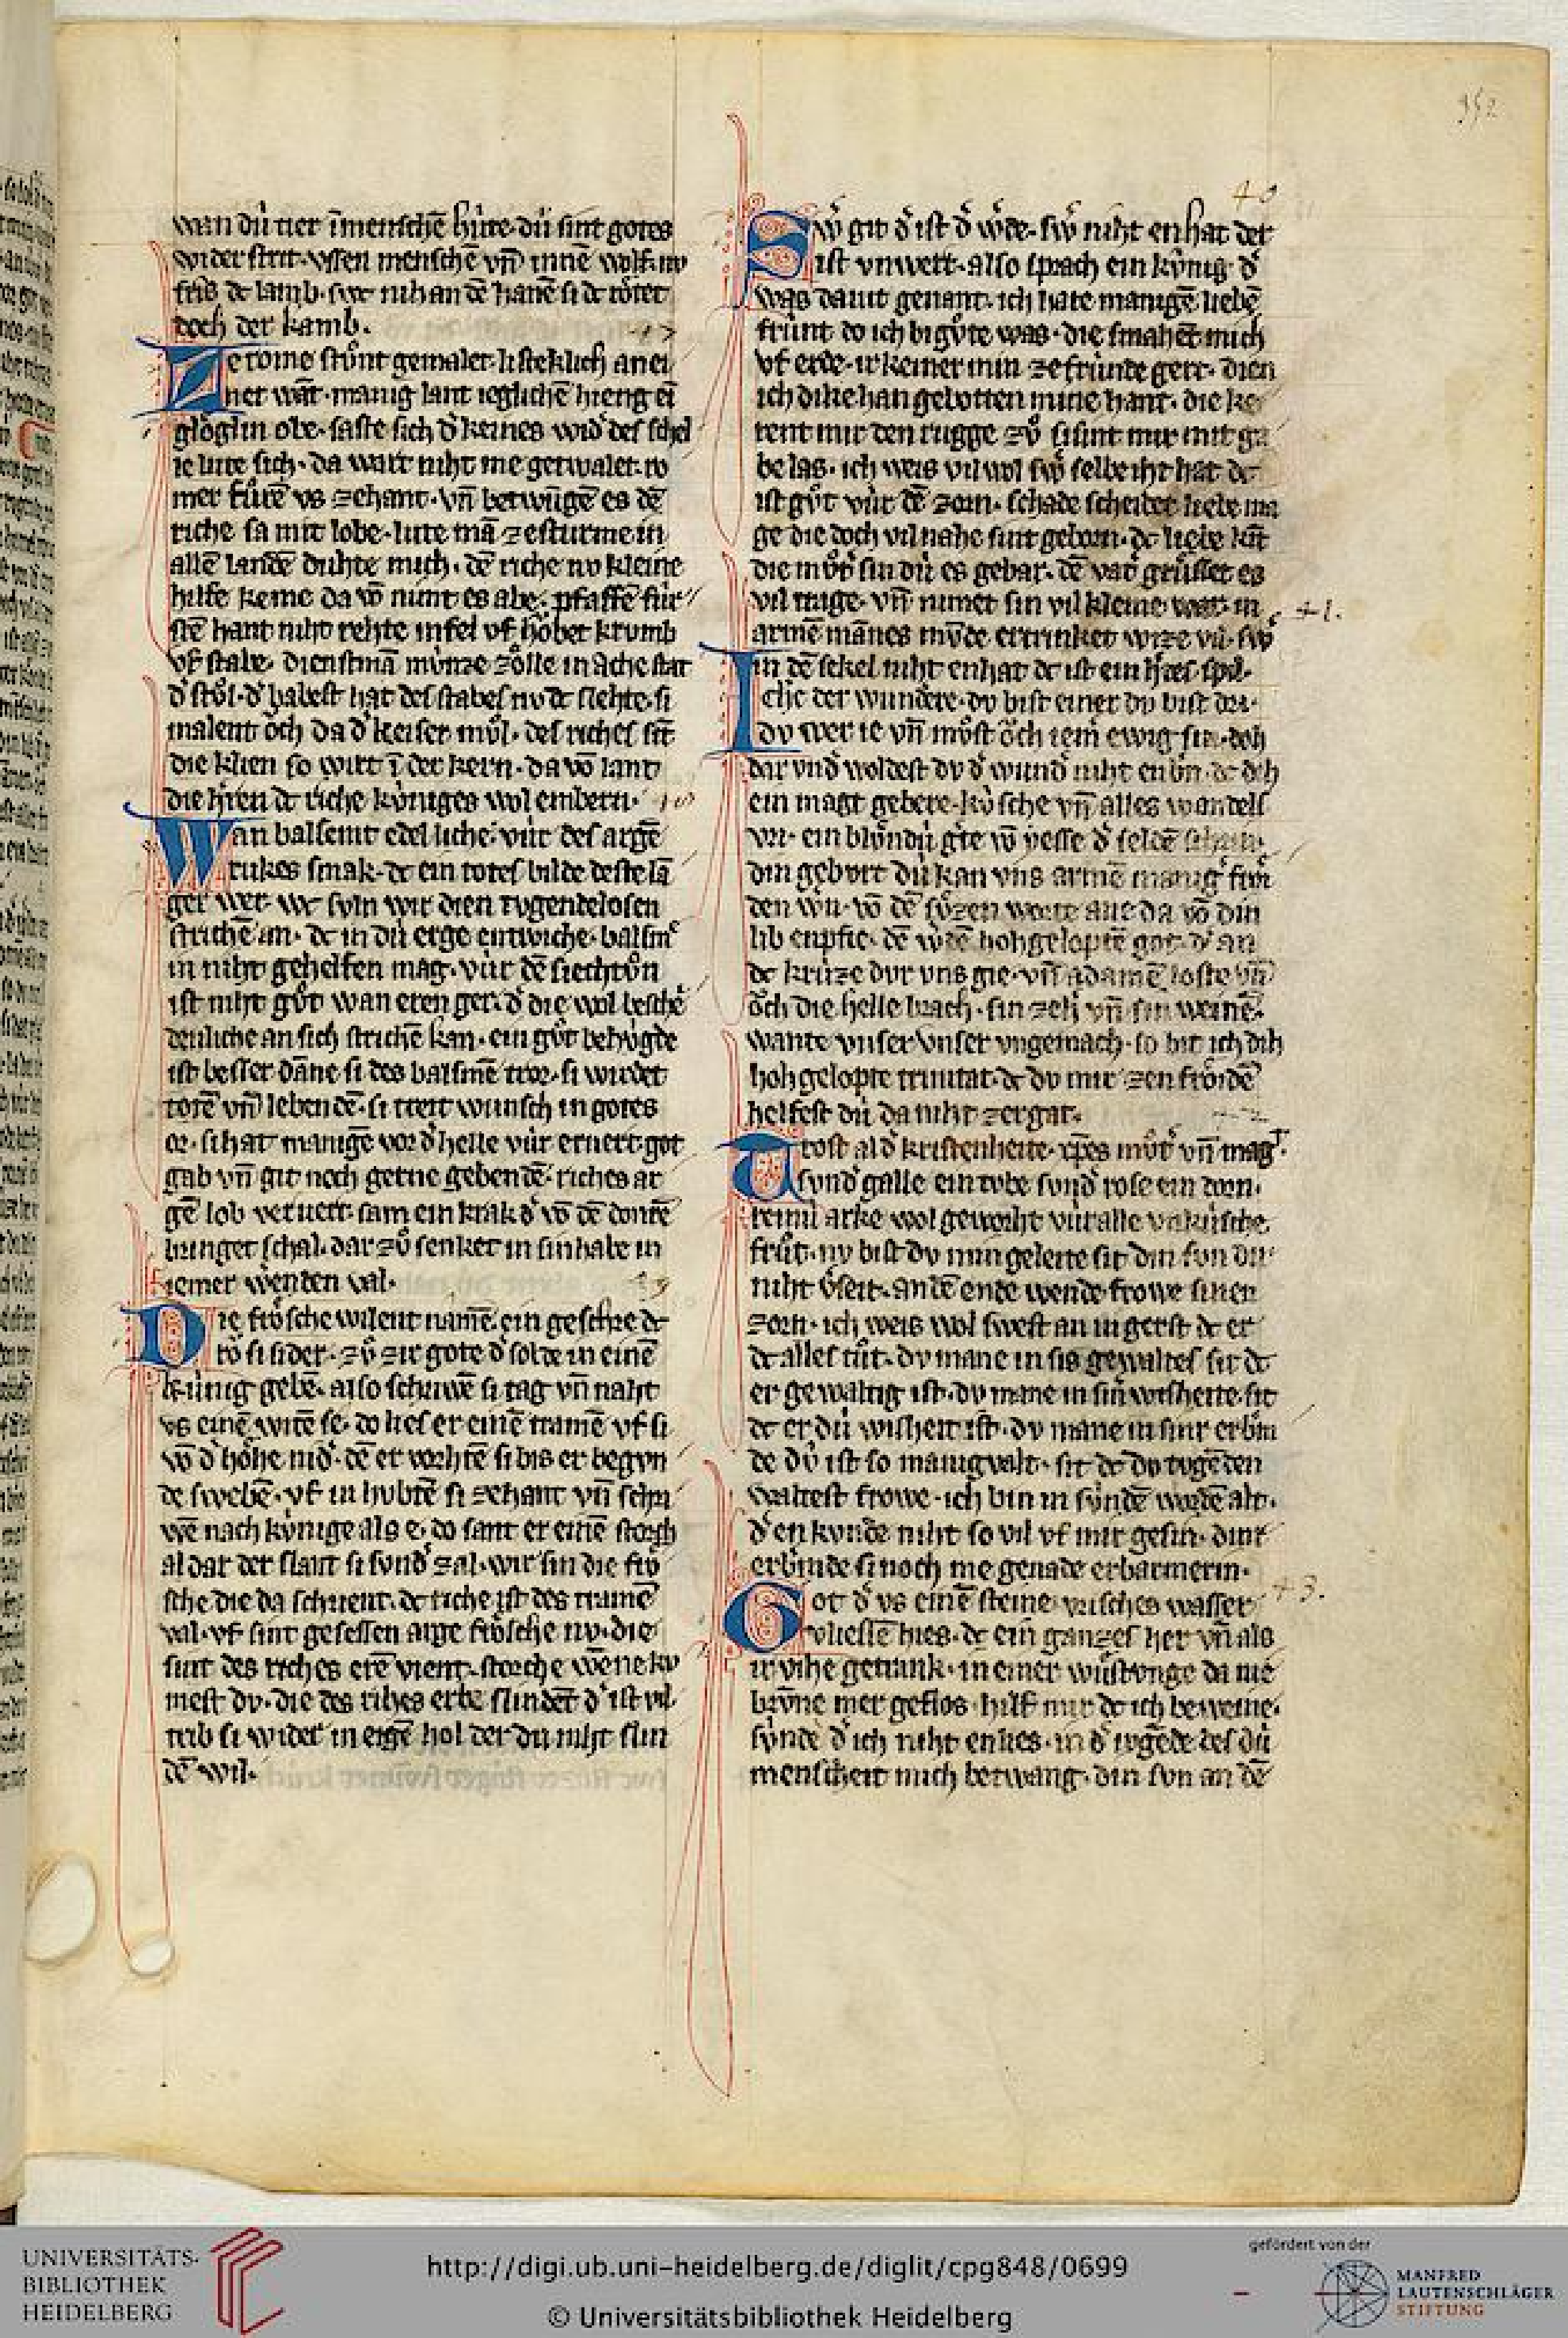 352
wan dú tier ī menschē húte· dú sint gotes
wider strit· vssen menschē vn̄ innē wolf· nv
doch der kamb.
37
Ze rome stůnt gemalet· listeklich an ei
ner wāt· manig lant ieglichē hieng ei
glǒglin obe· saste sich d͛ keines wid͛ des schel
le lute sich· da wart niht me getwalet· ro
mer fůrē vs zehant· vn̄ betwūgē es dē
riche sa mit lobe· lute mā ze sturme in
allē landē duhte mich· dē riche nv kleine
hilfe keme da vō nimt es abe· pfaffē fúr
stē hant niht rehte infel vf hǒbet krvmb
vf stabe· dienstmā mv́nze zôlle in ache stat
d͛ stůl· d͛ babest hat des stabes nv dc slehte· si
malent ǒch da d͛ keiser můl· des riches sit
die klien so wirt ī der kern· da vō lant
die h͛ren dc riche kv́niges wol enbern·
38
Wan balsemt edel liche· vúr des argē
rukes smak· dc ein totes bilde deste lā
ger wer· wc svln wir dien tvgendelosen
strichē an· dc in dú erge entwiche· balsm͛
in niht gehelfen mag· vúr dē siechtůn
ist niht gůt wan eren ger· d͛ die wol beschē
denliche an sich strichē kan· ein gůt behv́gde
ist besser dāne si des balsmē tror· si wirdet
totē vn̄ lebendē· si treit wunsch in gotes
or· si hat manigē vor d͛ helle vúr ernert· got
gab vn̄ git noch gerne gebendē· riches ar
gē lob verüert· sam ein krak d͛ vō dē donre
bringet schal· dar zů senket in sin habe in
iemer wēnden val·
39
Die frôsche wilent namē· ein geschre dc
ro si sider· zů zir gote d͛ solde in einē
kúnig gebē· also schriwē si tag vn̄ naht
vs einē witē se· do lies er einē tramē vf si
vō d͛ hôhe nid͛· dē er vorhtē si bis er begvn
de swebē· vf in hvbtē si zehant vn̄ schri
wē nach kv́nige als e· do sant er einē storch
al dar der slant si svnd͛ zal· wir sin die frô
sche die da schrient· dc riche ist des tramē
val· vf sint gesessen arge frôsche nv· die
sint des riches erē vient· storche wēne kv
mest dv· die des rihes erbe slindēt d͛ ist vil·
trib si wider in eigē hol der dú niht slin
dē wil·
40
Sw͛ git d͛ ist d͛ w͛de· sw͛ niht enhat der
ist vnwert· also sprach ein kv́nig d͛
was dauit genant· ich hate manigē liebē
frúnt do ich bi gůte was· die smahēt mich
vf erde· ir keiner min ze frúnde gert· dien
ich dike han gebotten mine hant· die ke
rent mir den rugge zů si sint mir mit ga
be las· ich weis vil wol sw͛ selbe iht hat dc
ist gůt vúr dē zorn· schade scheidet liebe ma
ge die doch vil nahe sint geborn· dc liebe kīt
die můt͛ sin dú es gebar· dē vat͛ grússet es
vil trage· vn̄ nimet sin vil kleine war· in
armē mānes mvnde ertrinket witze vil· sw͛
in dē sekel niht enhat dc ist ein h͛zes spil·
41.
Iche der wundere· dv bist einer dv bist dri·
dv wer ie vn̄ mǔst ǒch iem͛ ewig sin· doh
dar vnd͛ woldest dv d͛ wund͛ niht enb͛n· dc dih
ein magt gebere· kv́sche vn̄ alles wandels
vri· ein blv́ndú g͛te vō yesse
din gebvrt dú kan vns armē manig͛ frôi
den
lib enpfie· dē w͛dē hohgeloptē got· d͛ an
dc krúze dvr vns gie· vn̄ adamē loste vn̄
ǒch die helle brach· sin zeh͛ vn̄ sin weinē·
wante vnser vnser vngemach· so bit ich dih
hohgelopte trinitat· dc dv mir zen frôidē
helfest dú da niht zergat·
42
Trost al d͛ kristenheite· xp̄es můt͛ vn̄ magt·
svnd͛ galle ein tvbe svnd͛ rose ein dorn·
reinú arke wol geworht vúr alle vnkúsche
frůt· nv bist dv min geleite sit din svn dir
niht v͛seit· an dē ende wende frowe sinen
zorn· ich weis wol swest an in gerst dc er
dc alles tůt· dv mane in sis gewaltes sit dc
er gewaltig ist· dv mane in sin͛ wisheite· sit
dc er dú wisheit ist· dv mane in sinr erb͛m
de dú ist so manigvalt· sit dc dv tvgēden
waltest frowe· ich bin in sv́ndē wordē alt·
d͛ enkvnde niht so vil vf mir gesin· dinr
erb͛mde si noch me genade erbarmerin·
43.
Got d͛ vs einē steine· vrisches wasser
vliessē hies· dc ein ganzes her vn̄ als
ir vihe getrank· in einer wůstvnge da nie
brv̄ne mer geflos· hilf mir dc ich beweine·
sv́nde d͛ ich niht enlies· in d͛ ivgēde des dú
menscheit mich betwang· din svn an dē
UNIVERSITÄTS-
BIBLIOTHEK
HEIDELBERG
http://digi.ub.uni-heidelberg.de/diglit/cpg848/0699
© Universitätsbibliothek Heidelberg
gefördert von der
MANFRED
LAUTENSCHLÄGER
STIFTUNG